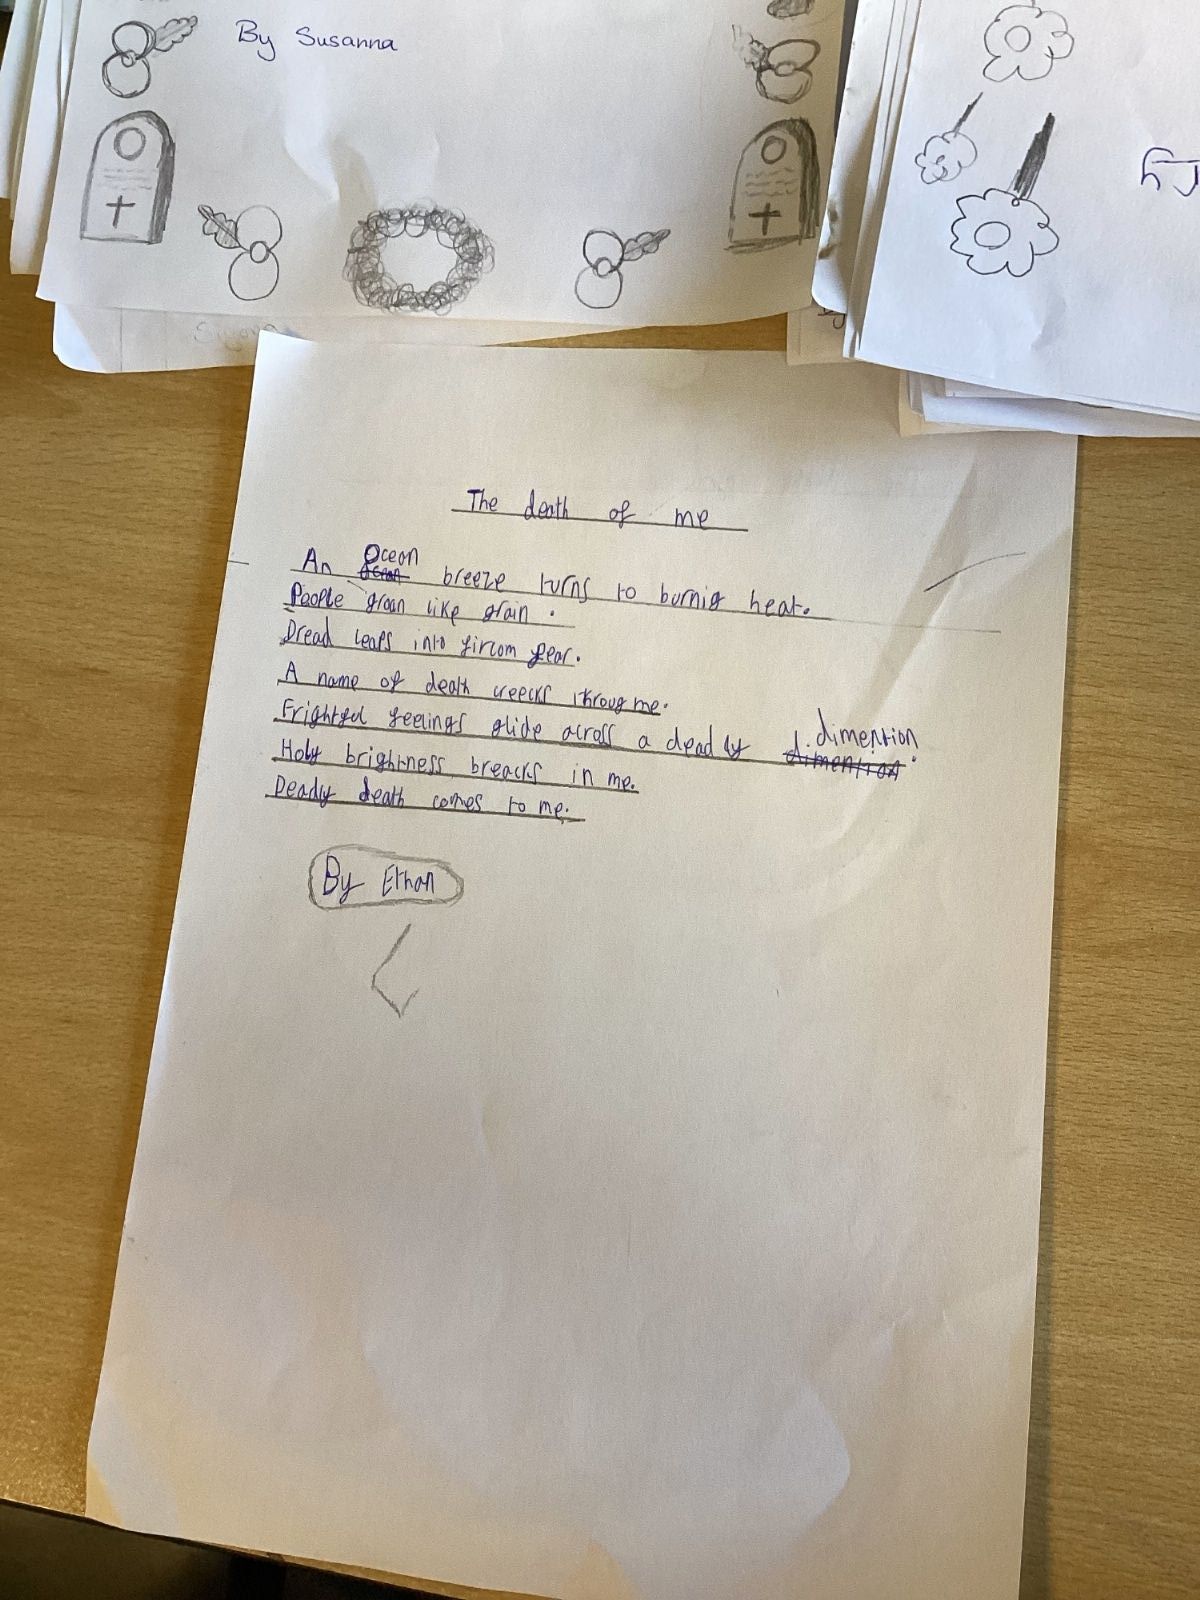 By Susanna
The death of me
An Ocean breeze turns to burnig heat.
People groan like grain.
Dread leaps into fircom fear.
A name of death creecks throug me.
Frightful feelings glide across a deadly dimention.
Holy brightness breacks in me.
Deadly death comes to me.
By Ethan